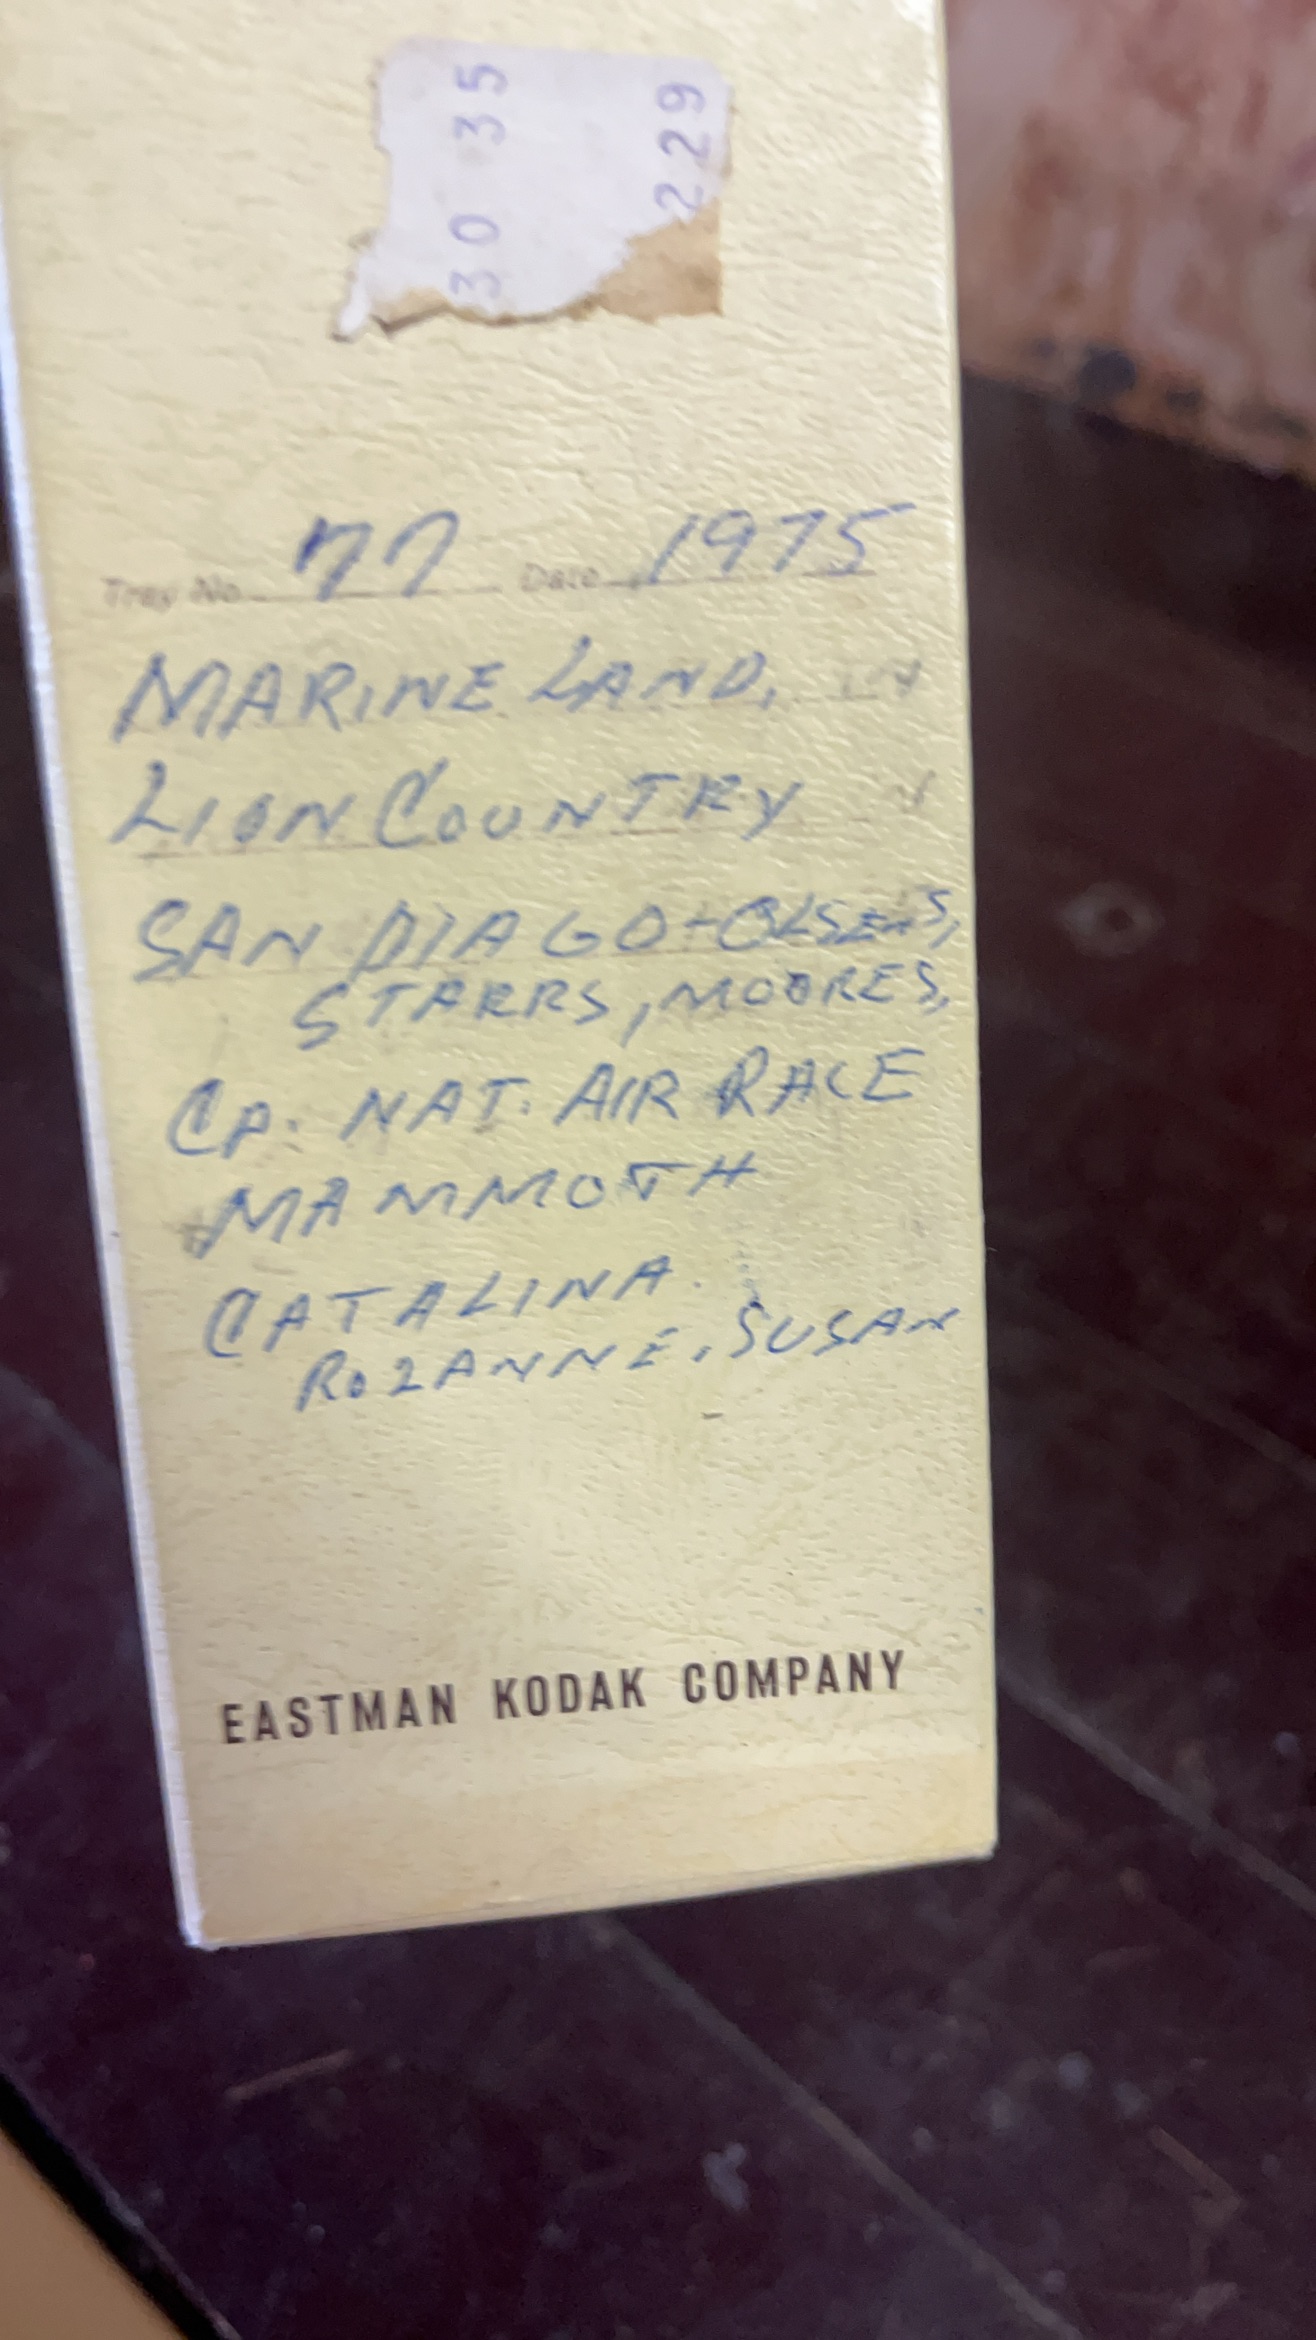 30 35
229
Tray No. 77 Date 1975
MARINE LAND,
LION COUNTRY
SAN DIAGO-OLSENS,
STARRS, MOORES,
CA. NAT. AIR RACE
MAMMOTH
CATALINA.
ROZANNE, SUSAN
EASTMAN KODAK COMPANY